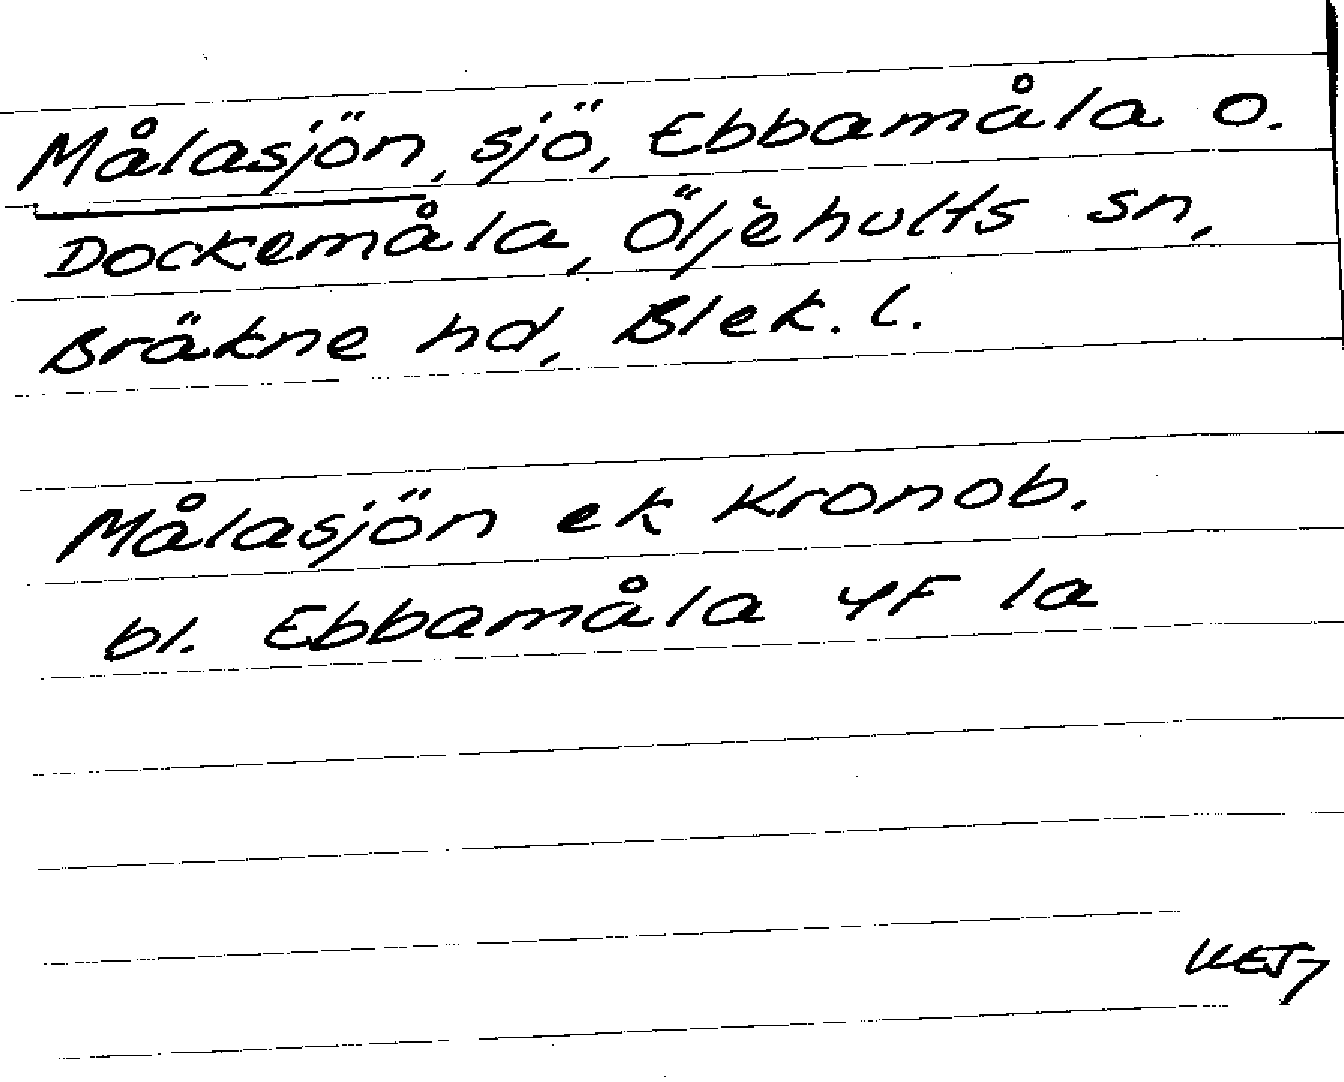 Målasjön, sjö, Ebbamåla o.
Dockemåla, Öljehults sn,
Bräkne hd, Blek. l.
Målasjön ek Kronob.
bl. Ebbamåla 4F 1a